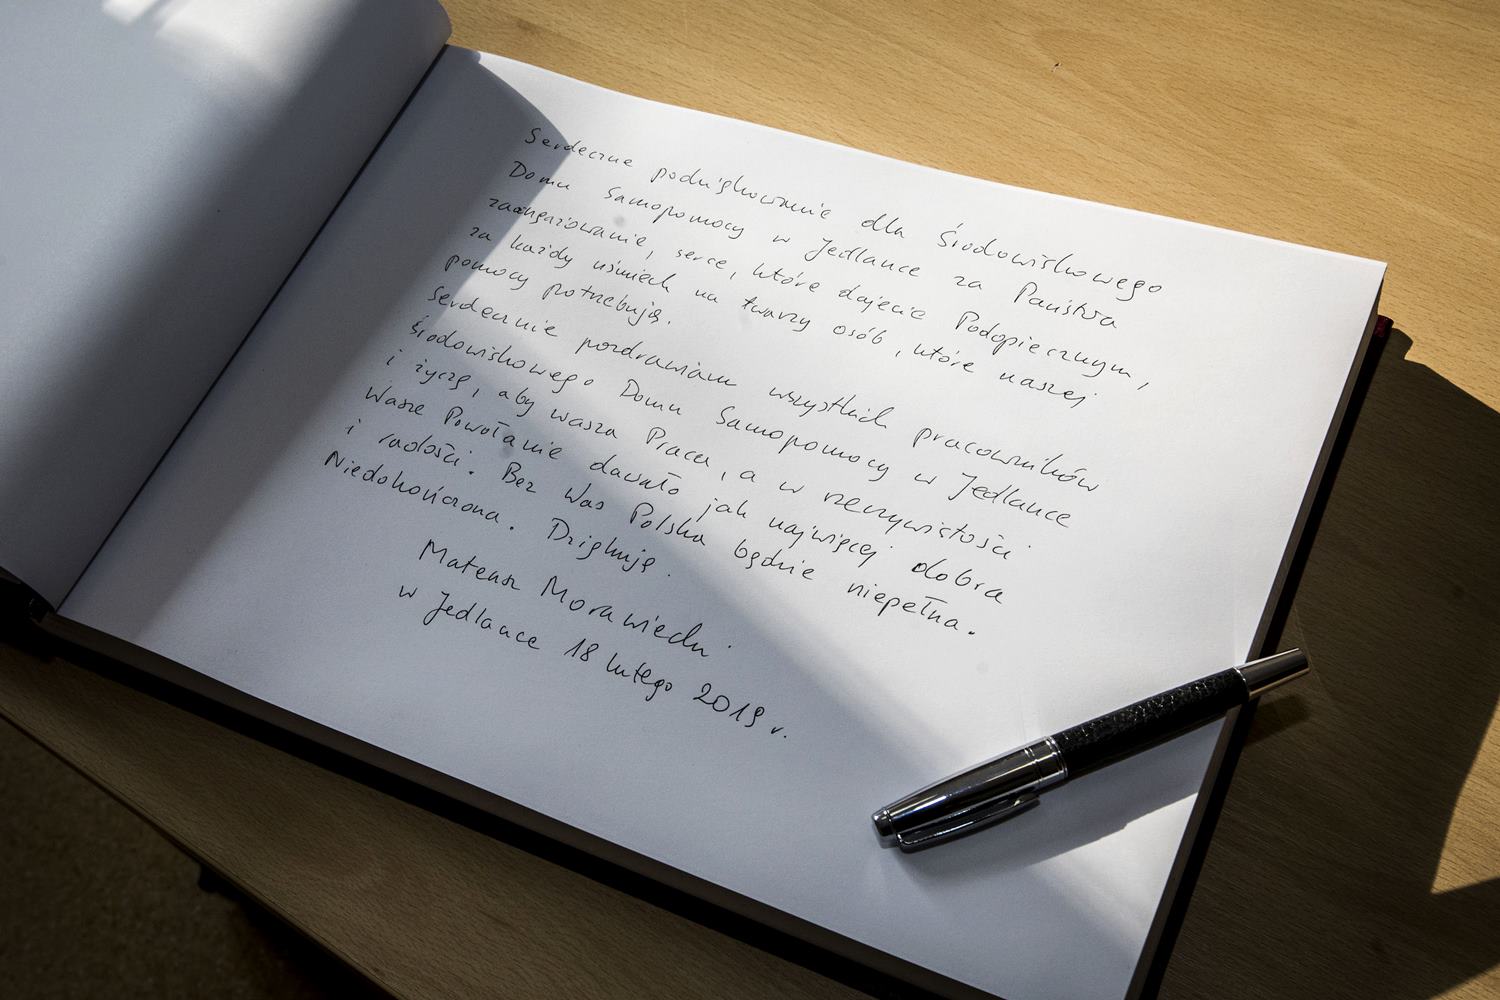 Serdeczne podziękowanie dla Środowiskowego
Domu Samopomocy w Jedlance za Państwa
zaangażowanie, serce, które dajecie Podopiecznym,
za każdy uśmiech na twarzy osób, które naszej
pomocy potrzebują.
Serdecznie pozdrawiam wszystkich pracowników
Środowiskowego Domu Samopomocy w Jedlance
i życzę, aby wasza Praca, a w rzeczywistości
Wasze Powołanie dawało jak najwięcej dobra
i radości. Bez Was Polska będzie niepełna.
Niedokończona. Dziękuję.
Mateusz Morawiecki
w Jedlance 18 lutego 2019 r.